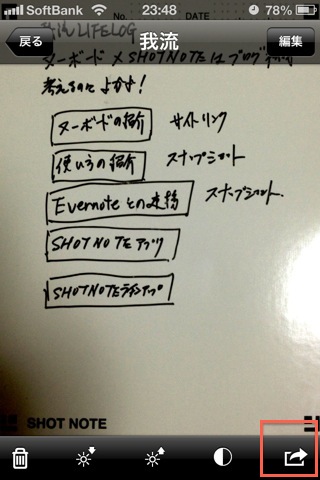 SoftBank 23:48 78%
戻る 我流 編集
No. DATE
我流 LIFELOG
ヌーボード × SHOTNOTEは ブログ
考えるのによかよ!
ヌーボードの紹介 サイトリンク
使い方の紹介 スナップショット
Evernoteとの連携 スナップショット
SHOTNOTEアプリ
SHOTNOTEラインアップ
SHOT NOTE